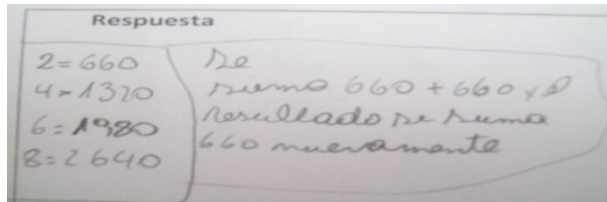 Respuesta
2=660
4=1320
6=1980
8=2640
se
sumo 660+660 y el
resultado se suma
660 nuevamente